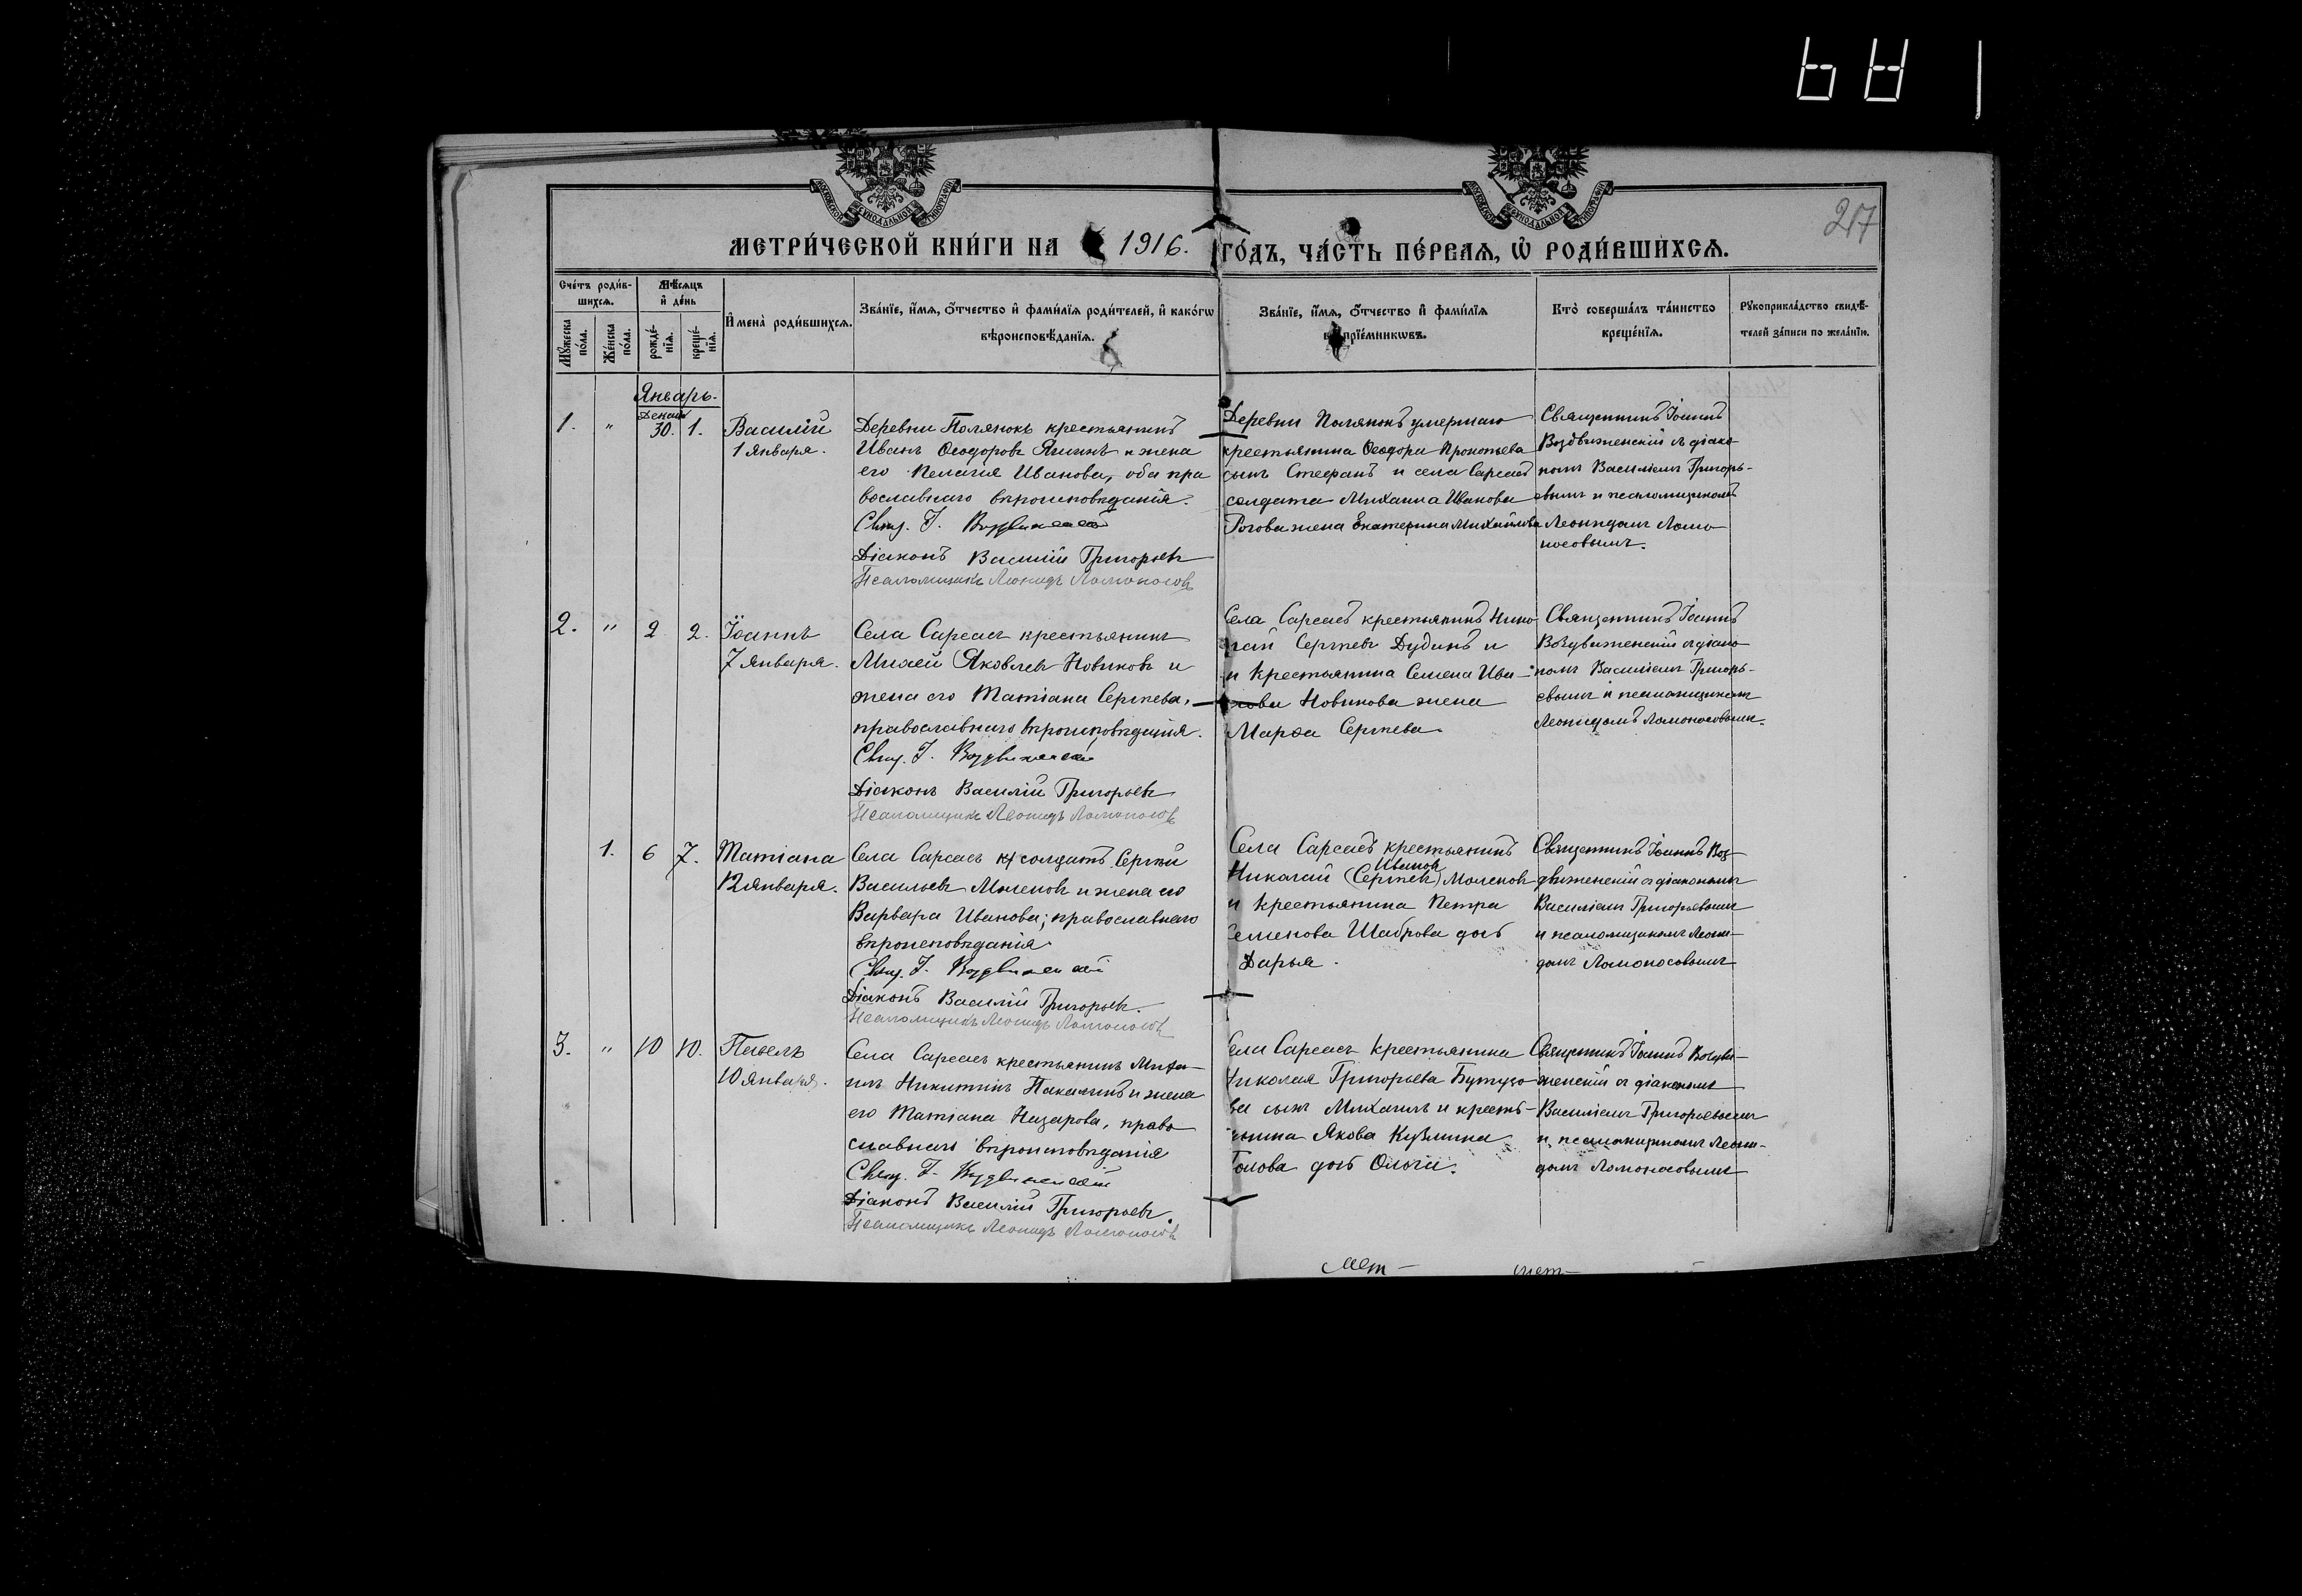 217
МОСКОВСКОЙ СѴНОДАЛЬНОЙ ТИПОГРАФІИ
МОСКОВСКОЙ СѴНОДАЛЬНОЙ ТИПОГРАФІИ
МЕТРИ́ЧЕСКОЙ КНИ́ГИ НА 1916. ГО́ДЪ, ЧА́СТЬ ПЕ́РВАЯ, Ѡ РОДИ́ВШИХСЯ.
Сче́тъ роди́в-
шихся.
Мѣ́сяцъ
и де́нь
Му́жеска
по́ла.
Же́нска
по́ла.
рожде́-
нія.
креще́-
нія.
Имена̀ роди́вшихся.
Зва́ніе, и́мя, о́тчество и фами́лія роди́телей, и како́гѡ
вѣроисповѣ́данія.
Зва́ніе, и́мя, о́тчество и фами́лія
воспріе́мникѡвъ.
Кто̀ соверша́лъ та́инство
креще́нія.
Рукоприкла́дство свидѣ́-
телей за́писи по жела́нію.
Январь.
1. " 30. 1.
Василій
1 января.
Деревни Полянокъ крестьянинъ
Иванъ Ѳеодоровъ Яшинъ и жена
его Пелагія Иванова, оба пра
вославнаго вѣроисповѣданія.
Свящ. І. Воздвиженскій
Діаконъ Василій Григорьевъ
Псаломщикъ Леонидъ Ломоносовъ
Деревни Полянокъ умершаго
крестьянина Ѳеодора Прокопьева
сынъ Стефанъ и села Сарсасъ
солдата Михаила Иванова
Рогова жена Екатерина Михайлова
Священникъ Іоаннъ
Воздвиженскій съ діако
номъ Василіемъ Григорь-
евымъ и псаломщикомъ
Леонидомъ Ломо
носовымъ.
2. " 2 2.
Іоаннъ
7 января.
Села Сарсасъ крестьянинъ
Михей Яковлевъ Новиковъ и
жена его Татіана Сергѣева,
православнаго вѣроисповѣданія.
Свящ. І. Воздвиженскій
Діаконъ Василій Григорьевъ
Псаломщикъ Леонидъ Ломоносовъ
Села Сарсасъ крестьянинъ Нико
лай Сергѣевъ Дудинъ и
и крестьянина Семена Ива-
нова Новикова жена
Марѳа Сергѣева.
Священникъ Іоаннъ
Воздвиженскій съ діако
номъ Василіемъ Григорь-
евымъ и псаломщикомъ
Леонидомъ Ломоносовымъ.
1. 6 7.
Татіана
12 января.
Села Сарсасъ кр солдатъ Сергѣй
Васильевъ Моленовъ и жена его
Варвара Иванова; православнаго
вѣроисповѣданія
Свящ. І. Воздвиженскій
Діаконъ Василій Григорьевъ.
Псаломщикъ Леонидъ Ломоносовъ
Села Сарсасъ крестьянинъ
Ивановъ
Николай (Сергѣевъ) Моленовъ
и крестьянина Петра
Семенова Шаброва дочь
Дарья.
Священникъ Іоаннъ Воз-
движенскій съ діакономъ
Василіемъ Григорьевымъ
и псаломщикомъ Леони-
домъ Ломоносовымъ
3. " 10 10.
Павелъ
10 января.
Села Сарсасъ крестьянинъ Миха-
илъ Никитинъ и жена
его Татіана Назарова, право
славнаго вѣроисповѣданія
Свящ. І. Воздвиженскій
Діаконъ Василій Григорьевъ.
Псаломщикъ Леонидъ Ломоносовъ
Села Сарсасъ крестьянина
Николая Григорьева Бутузо
ва сынъ Михаилъ и кресть-
янина Якова Кузмина
дочь Ольга.
Священникъ Іоаннъ Воздви-
женскій съ діакономъ
Василіемъ Григорьевымъ
и псаломщикомъ Леони-
домъ Ломоносовымъ